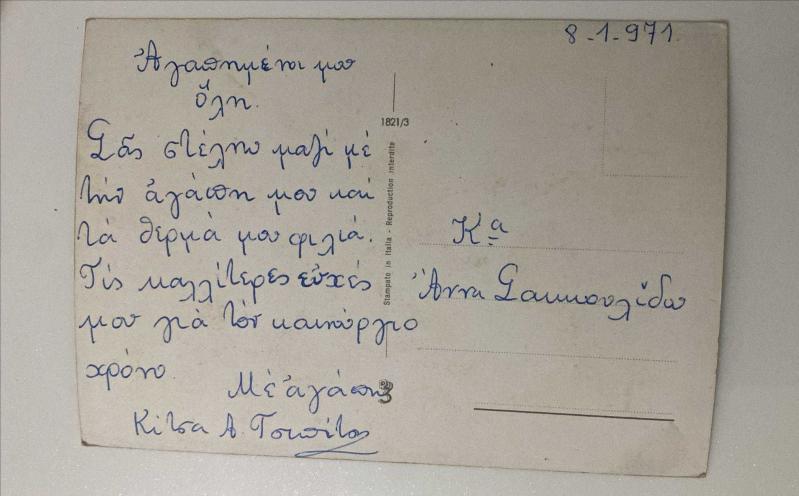 8-1-971.
Ἀγαπημένοι μου
ὅλη.
Σᾶς στέλνω μαζί μέ
τήν ἀγάπη μου καί
τά θερμά μου φιλιά.
Τίς καλλίτερες εὐχές
μου γιά τόν καινόργιο
χρόνο.
Μέ ἀγάπη
Κίτσα Α.
1821/3
Stampato in Italia - Reproduction interdite
Κα
Ἄννα Σακκουλίδου